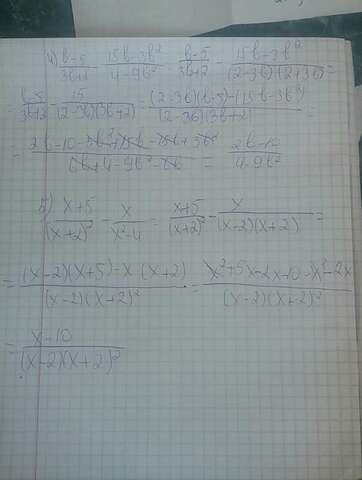 4) \frac{b-5}{3b+2} - \frac{15b-3b^2}{4-9b^2} = \frac{b-5}{3b+2} - \frac{15b-3b^2}{(2-3b)(2+3b)} =
= \frac{(2-3b)(b-5)-(15b-3b^2)}{(2-3b)(3b+2)} =
= \frac{2b-10-3b^2+15b-15b+3b^2}{6b+4-9b^2-6b} = \frac{2b-10}{4-9b^2}
5) \frac{x+5}{(x+2)^2} - \frac{x}{x^2-4} = \frac{x+5}{(x+2)^2} - \frac{x}{(x-2)(x+2)} =
= \frac{(x-2)(x+5)-x(x+2)}{(x-2)(x+2)^2} = \frac{x^2+5x-2x-10-x^2-2x}{(x-2)(x+2)^2}
= \frac{x-10}{(x-2)(x+2)^2}